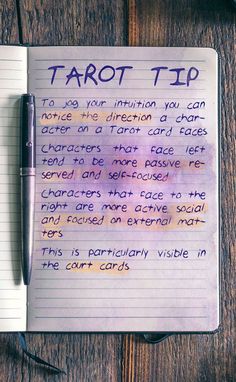 TAROT TIP
To jog your intuition you can
notice the direction a char-
acter on a Tarot card faces
Characters that face left
tend to be more passive re-
served and self-focused
Characters that face to the
right are more active social
and focused on external mat-
ters
This is particularly visible in
the court cards